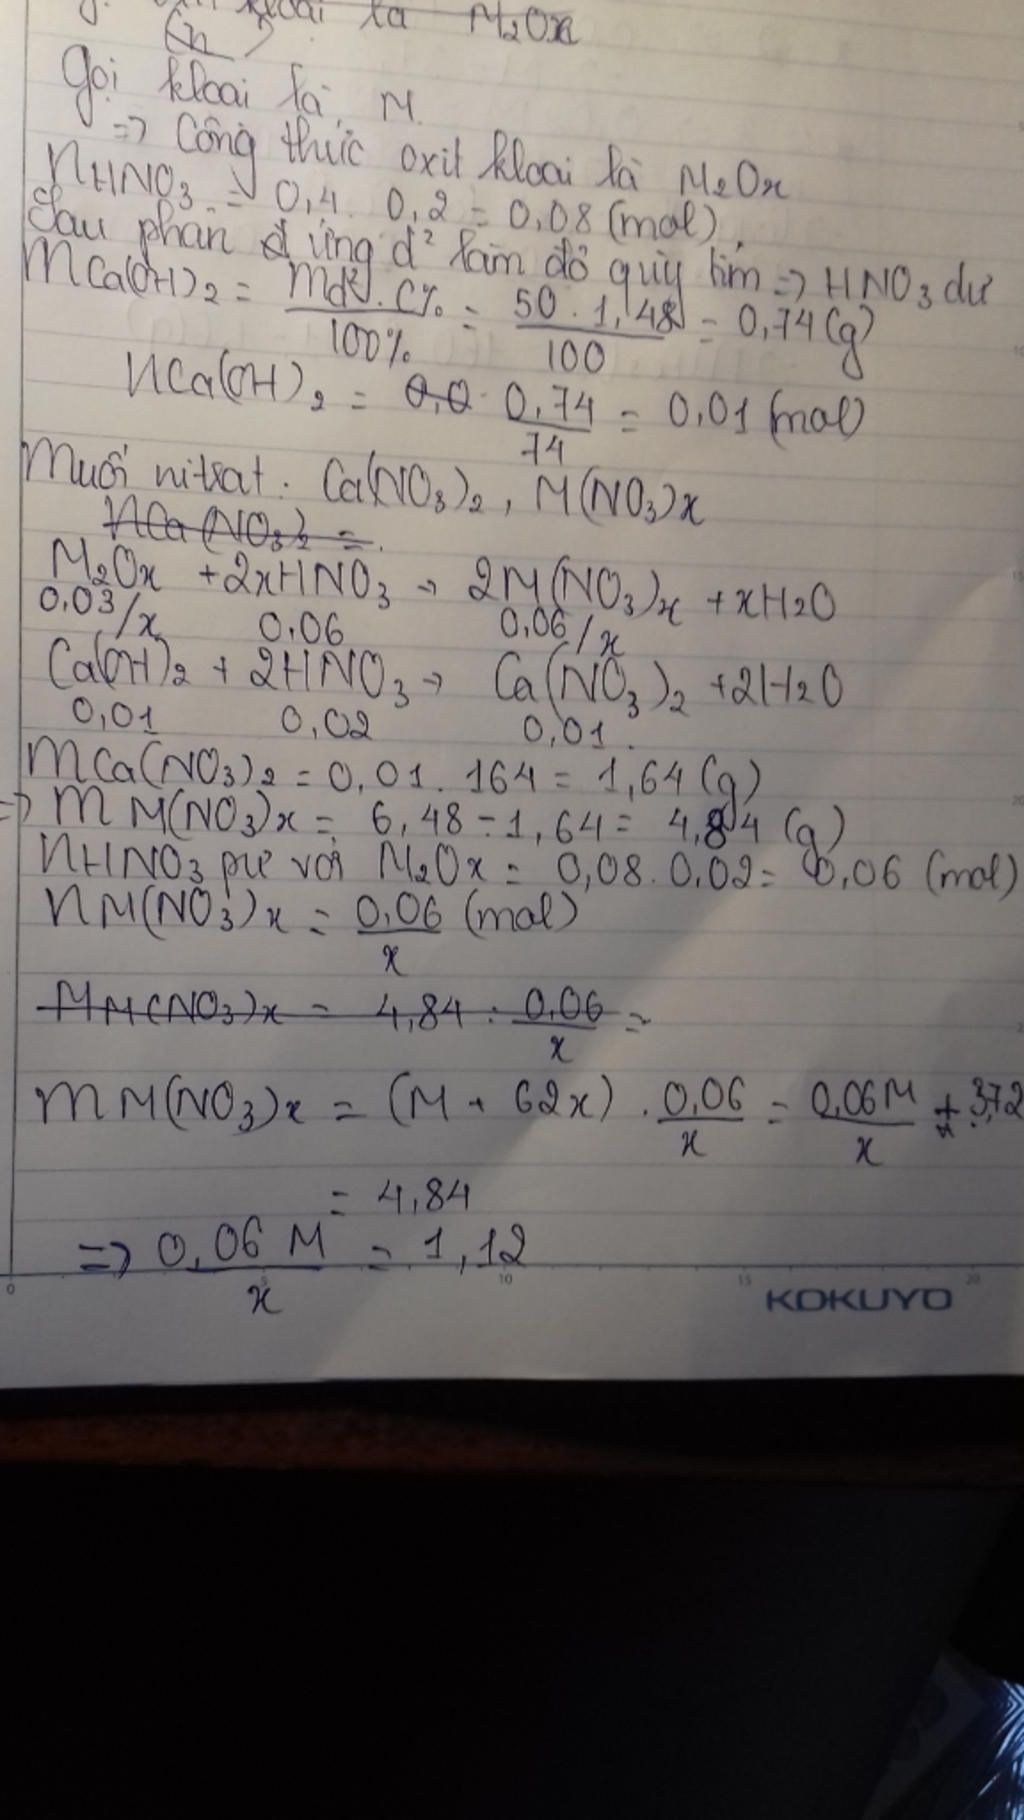 kloại là M₂Ox
Gọi kloai là M.
=> Công thức oxit kloai là M₂Ox
nHNO₃ = 0,4. 0,2 = 0,08 (mol)
Sau phản ứng d² làm đỏ quỳ tím => HNO₃ dư
mCa(OH)₂ = mdd. C% / 100% = 50 . 1,48 / 100 = 0,74 (g)
nCa(OH)₂ = 0,74 / 74 = 0,01 (mol)
Muối nitrat: Ca(NO₃)₂, M(NO₃)x
nCa(NO₃)₂ =
M₂Ox + 2xHNO₃ → 2M(NO₃)x + xH₂O
0,03/x 0,06 0,06/x
Ca(OH)₂ + 2HNO₃ → Ca(NO₃)₂ + 2H₂O
0,01 0,02 0,01
mCa(NO₃)₂ = 0,01. 164 = 1,64 (g)
=> mM(NO₃)x = 6,48 - 1,64 = 4,84 (g)
nHNO₃ pư với M₂Ox = 0,08. 0,02 = 0,06 (mol)
nM(NO₃)x = 0,06 / x (mol)
MM(NO₃)x = 4,84 : 0,06 / x =
mM(NO₃)x = (M + 62x) . 0,06 / x = 0,06M / x + 3,72
= 4,84
=> 0,06 M / x = 1,12
0 5 10 15 20
KOKUYO